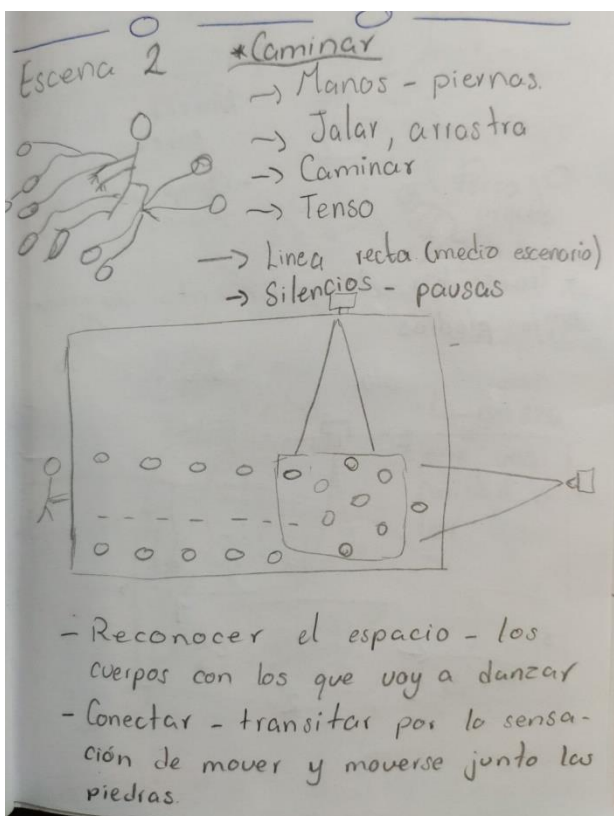 Escena 2
*Caminar
→ Manos - piernas.
→ Jalar, arrastra
→ Caminar
→ Tenso
→ Linea recta (medio escenario)
→ Silencios - pausas
- Reconocer el espacio - los
cuerpos con los que voy a danzar
- Conectar - transitar por la sensa-
ción de mover y moverse junto las
piedras.